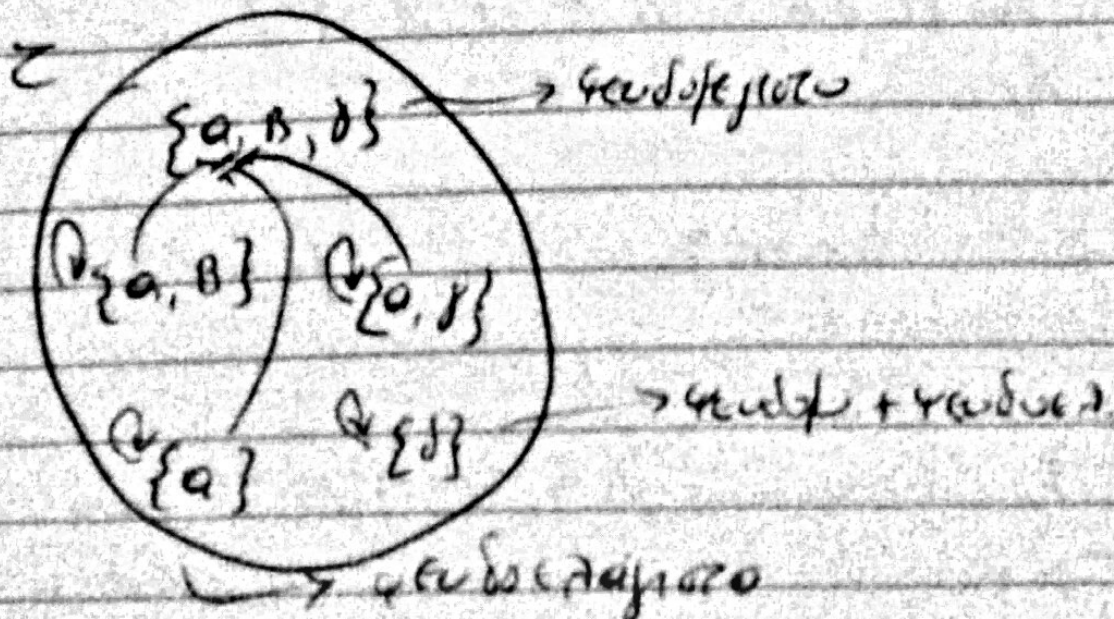 Σ
{α, β, γ} → ψευδομέγιστο
{α, β} {α, γ}
{α} {δ} → ψευδομ + ψευδοελ
→ ψευδοελάχιστο